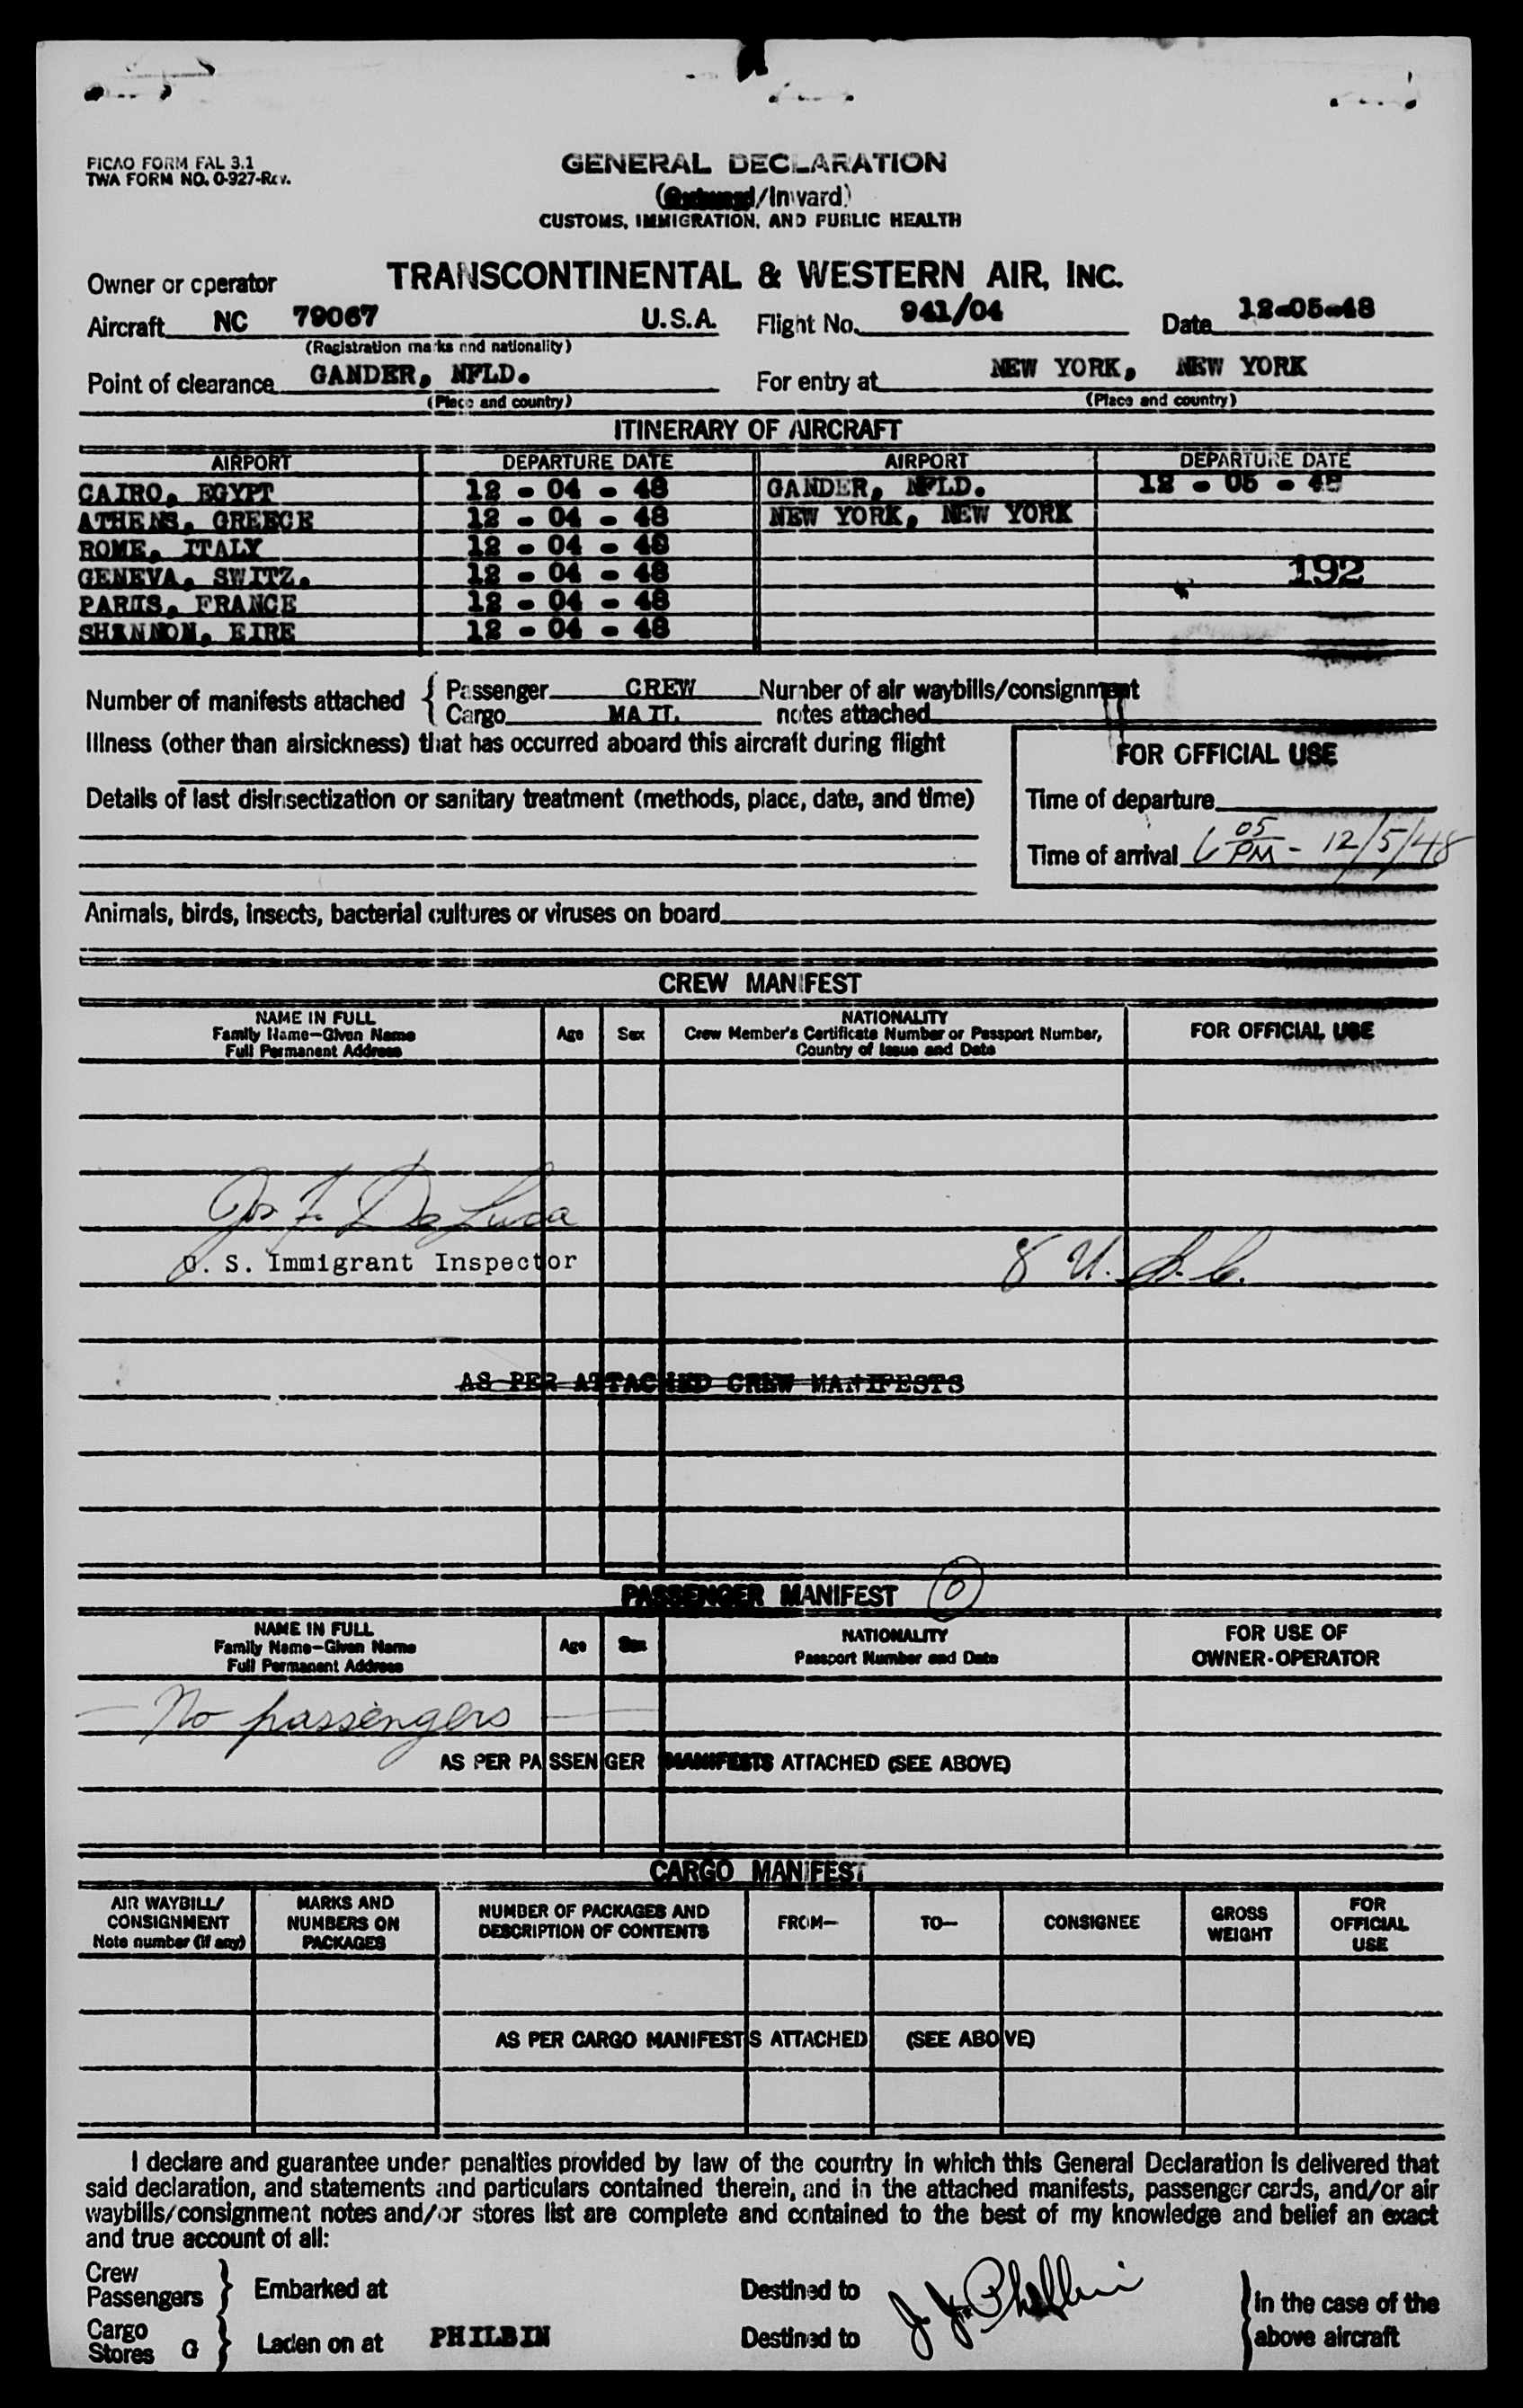 PICAO FORM FAL 3.1
TWA FORM NO. 0-927-Rev.
GENERAL DECLARATION
(Outward/Inward)
CUSTOMS, IMMIGRATION, AND PUBLIC HEALTH
Owner or operator TRANSCONTINENTAL & WESTERN AIR, INC.
Aircraft NC 79067 U.S.A. Flight No. 941/04 Date 12-05-48
(Registration marks and nationality)
Point of clearance GANDER, NFLD. For entry at NEW YORK, NEW YORK
(Place and country) (Place and country)
ITINERARY OF AIRCRAFT
AIRPORT DEPARTURE DATE AIRPORT DEPARTURE DATE
CAIRO, EGYPT 12 - 04 - 48 GANDER, NFLD. 12 - 05 - 48
ATHENS, GREECE 12 - 04 - 48 NEW YORK, NEW YORK
ROME, ITALY 12 - 04 - 48
GENEVA, SWITZ. 12 - 04 - 48 192
PARIS, FRANCE 12 - 04 - 48
SHANNON, EIRE 12 - 04 - 48
Number of manifests attached { Passenger CREW Number of air waybills/consignment
Cargo MAIL notes attached
Illness (other than airsickness) that has occurred aboard this aircraft during flight
FOR OFFICIAL USE
Details of last disinsectization or sanitary treatment (methods, place, date, and time) Time of departure
Time of arrival 6 05 PM - 12/5/48
Animals, birds, insects, bacterial cultures or viruses on board
CREW MANIFEST
NAME IN FULL
Family Name—Given Name
Full Permanent Address
Age Sex
NATIONALITY
Crew Member's Certificate Number or Passport Number,
Country of Issue and Date
FOR OFFICIAL USE
Jos F. De Luca
U. S. Immigrant Inspector 8 U.S.C.
AS PER ATTACHED CREW MANIFESTS
PASSENGER MANIFEST 0
NAME IN FULL
Family Name—Given Name
Full Permanent Address
Age Sex
NATIONALITY
Passport Number and Date
FOR USE OF
OWNER-OPERATOR
— No passengers —
AS PER PASSENGER MANIFESTS ATTACHED (SEE ABOVE)
CARGO MANIFEST
AIR WAYBILL/
CONSIGNMENT
Note number (if any)
MARKS AND
NUMBERS ON
PACKAGES
NUMBER OF PACKAGES AND
DESCRIPTION OF CONTENTS
FROM— TO— CONSIGNEE
GROSS
WEIGHT
FOR
OFFICIAL
USE
AS PER CARGO MANIFESTS ATTACHED (SEE ABOVE)
I declare and guarantee under penalties provided by law of the country in which this General Declaration is delivered that
said declaration, and statements and particulars contained therein, and in the attached manifests, passenger cards, and/or air
waybills/consignment notes and/or stores list are complete and contained to the best of my knowledge and belief an exact
and true account of all:
Crew
Passengers } Embarked at Destined to J. J. Philbin } in the case of the
Cargo
Stores G } Laden on at PHILBIN Destined to above aircraft